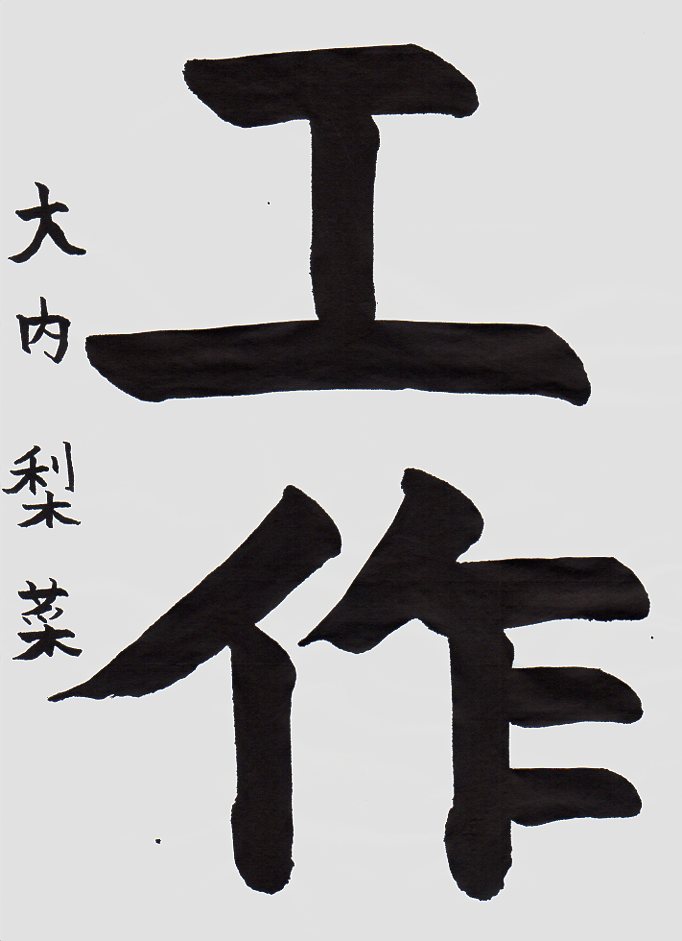 工作
大内梨菜